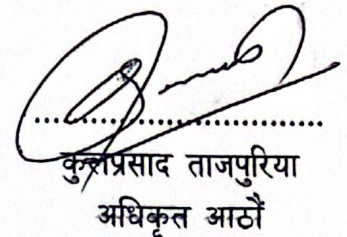 कुलप्रसाद ताजपुरिया
अधिकृत आठौं